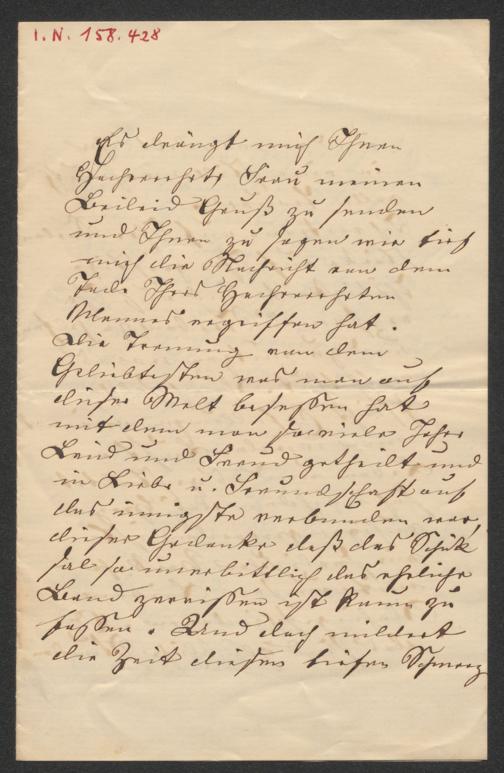 I.N. 158.428
Es drängt mich Ihnen
Hochverehrte Frau meinen
Beileid Gruß zu senden
und Ihnen zu sagen wie tief
mich die Nachricht von dem
Tode Ihres Hochverehrten
Mannes ergriffen hat.
Die Trennung von dem
Geliebtesten was man auf
dieser Welt besessen hat
mit dem man so viele Jahre
Leid und Freud getheilt und
in Liebe u. Freundschaft auf
das innigste verbunden war,
dieser Gedanke daß das Schick
sal so unerbittlich das eheliche
Band zerreissen ist kaum zu
fassen. Und doch mildert
die Zeit diesen tiefen Schmerz